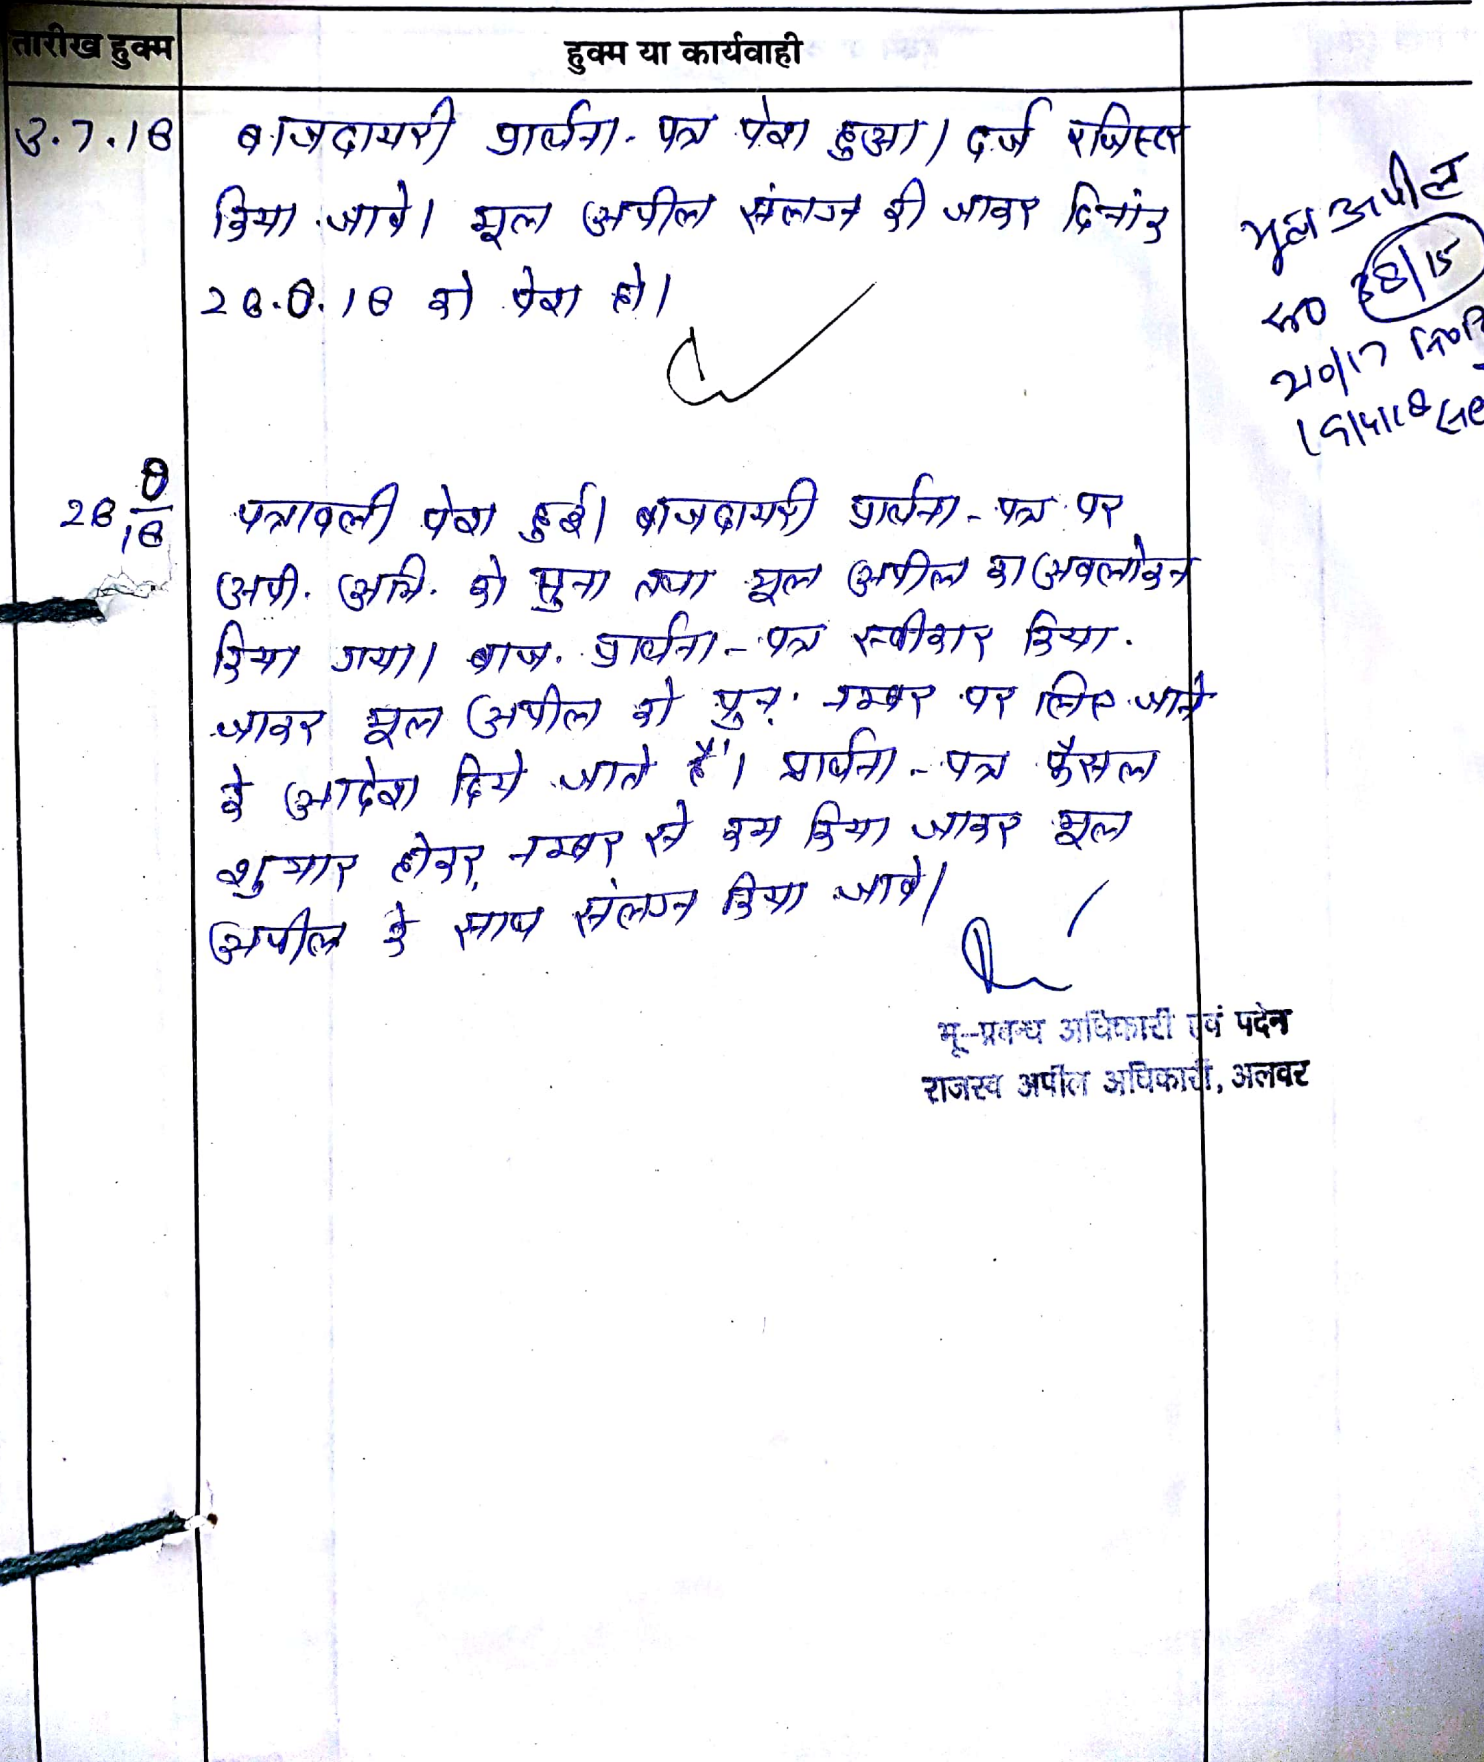 तारीख हुक्म
हुक्म या कार्यवाही
3.7.18
बाजदायरी प्रार्थना-पत्र पेश हुआ। दर्ज रजिस्टर
किया जावे। मूल अपील संलग्न की जाकर दिनांक
28.8.18 को पेश हो।
मूल अपील
38/15
28.8.18
पत्रावली पेश हुई। बाजदायरी प्रार्थना-पत्र पर
अपी. अभि. को सुना तथा मूल अपील का अवलोकन
किया गया। बाज. प्रार्थना-पत्र स्वीकार किया
जाकर मूल अपील को पुन: नम्बर पर लिए जाने
के आदेश दिये जाते हैं। प्रार्थना-पत्र फैसल
शुमार होकर नम्बर से कम किया जाकर मूल
अपील के साथ संलग्न किया जावे।
भू-प्रबन्ध अधिकारी एवं पदेन
राजस्व अपील अधिकारी, अलवर